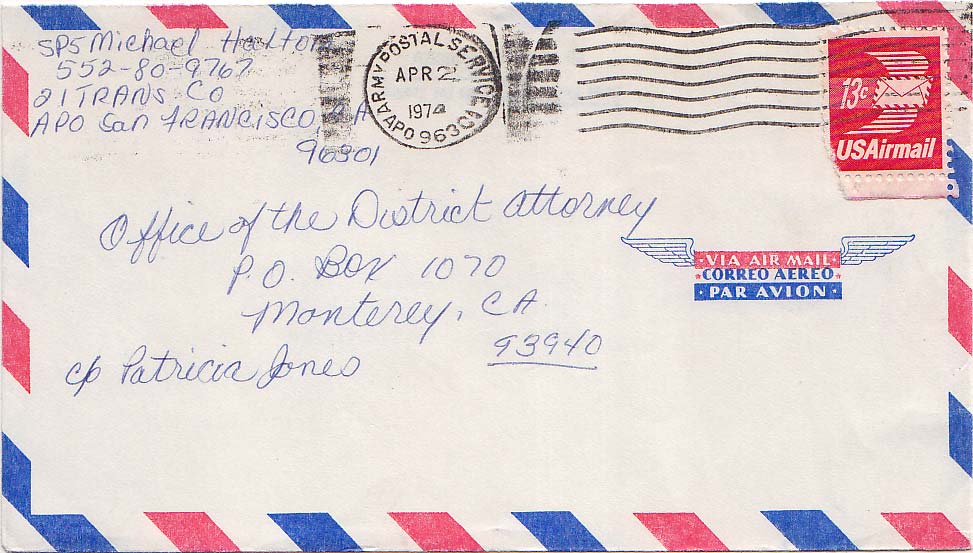 SP5 Michael Halton
552-80-9767
21 TRANS CO
APO San FRANCISCO, CA
96301
ARMY POSTAL SERVICE
APR 2
1974
APO 963
13c
USAirmail
Office of the District Attorney
P.O. Box 1070
Monterey, CA
93940
c/o Patricia Jones
VIA AIR MAIL
CORREO AEREO
PAR AVION